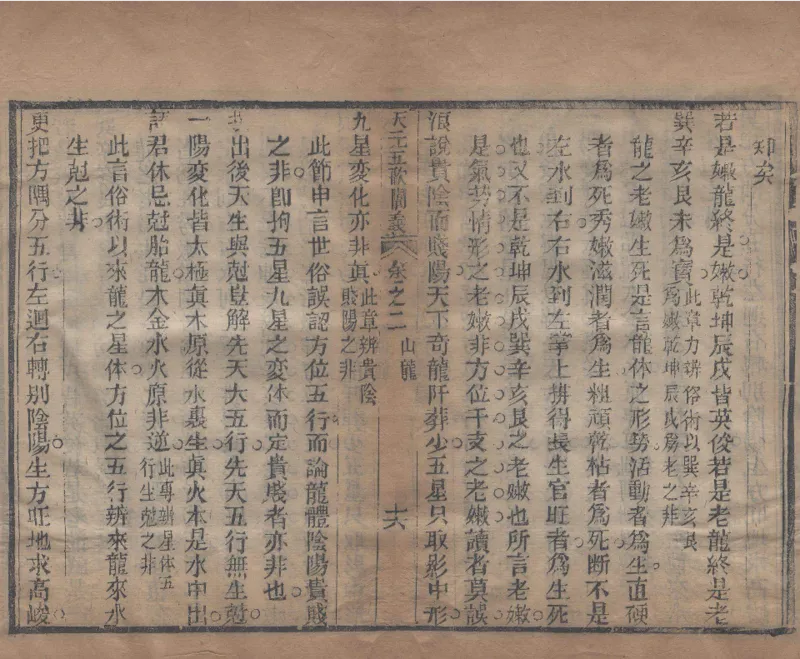 知矣
若是嫩龍終是嫩乾坤辰戌皆英俊若是老龍終是老
巽辛亥艮未為寶此章力辨俗術以巽辛亥艮
為嫩乾坤辰戌為老之非
龍之老嫩生死是言龍体之形势活動者為生直硬
者為死秀嫩滋潤者為生粗頑乾枯者為死断不是
左水到右右水到左掌上排得長生官旺者為生死
也又不是乾坤辰戌巽辛亥艮之老嫩也所言老嫩
是氣势情形之老嫩非方位干支之老嫩讀者莫誤
浪說貴陰而賤陽天下奇龍阡葬少五星只取影中形
天元五歌闡義 卷之二 山龍 十六
九星變化亦非真此章辨貴陰
賤陽之非
此節申言世俗誤認方位五行而論龍體陰陽貴賤
之非卽拘五星九星之変体而定貴賎者亦非也
出後天生與尅豈解先天大五行先天五行無生尅
一陽変化皆太極真木原從水裏生真火本是水中出
請君休忌尅胎龍木金水火原非逆此專辨星体五
行生尅之非
此言俗術以來龍之星体方位之五行辨來龍來水
生尅之非
更把方隅分五行左迴右轉別陰陽生方旺地求高峻